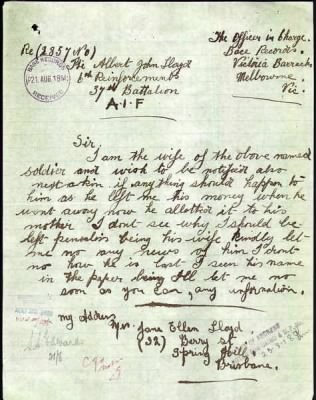 The Officer in Charge.
Base Records.
Victoria Barracks
Melbourne.
Vic.
Re (2357 No)
Pte Albert John Lloyd
6th Reinforcements
37th Battalion
A.I.F
BASE RECORDS
21 AUG 191
RECEIVED
Sir
I am the wife of the above named
soldier and wish to be notified also
next akin if anything should happen to
him as he left me his money when he
went away now he allotted it to his
mother I dont see why I should be
left pension being his wife Kindly let
me no any news of him I dont
no how he is. last I seen his name
in the paper being Ill let me no
soon as you can, any information.
my Address
Mrs. Jane Ellen Lloyd
(32) Berry st
Spring Hill
Brisbane.